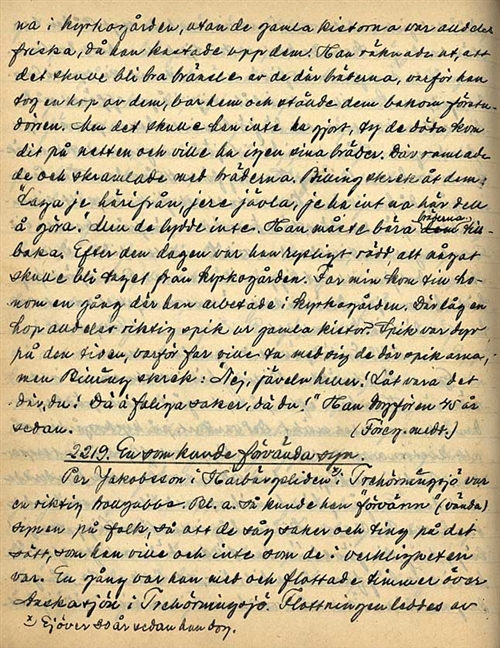 na i kyrkogården, utan de gamla kistorna var alldeles
friska, då han kastade upp dem. Han räknade ut, att
det skulle bli bra bränsle av de där bräderna, varför han
tog en hop av dem, bar hem och ställde dem bakom förstu-
dörren. Men det skulle han inte ha gjort, ty de döda kom
dit på natten och ville ha igen sina bräder. Där ramlade
de och skramlade med bräderna. Billing skrek åt dem:
"Laga je härifrån, jere jävla, je ha int na här dell
å göra." Men de lydde inte. Han måste bära bräderna till-
baka. Efter den dagen var han rysligt rädd, att något
skulle bli taget från kyrkogården. Far min kom till ho-
nom en gång där han arbetade i kyrkogården. Där låg en
hop alldeles riktig spik ur gamla kistor. Spik var dyr
på den tiden, varför far ville ta med sig de där spikarna,
men Billing skrek: "Nej, jäveln heller! Låt vara det
där, du! Dä ä faliga saker, dä du!" Han dog för en 45 år
sedan. (Föreg. medt.)
2219. En som kunde förvända syn.
Per Jakobsson i Harbärgsliden x), Trehörningsjö var
en riktig trollgubbe. Bl. a. så kunde han "förvänn" (vända)
synen på folk, så att de såg saker och ting på det
sätt, som han ville och inte som de i verkligheten
var. En gång var han med och flottade timmer över
i Trehörningsjö. Flottningen leddes av
x) Ej över 80 år sedan han dog.